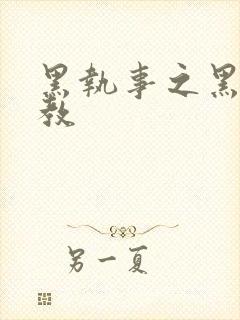 黑執事之黑
教
另一夏